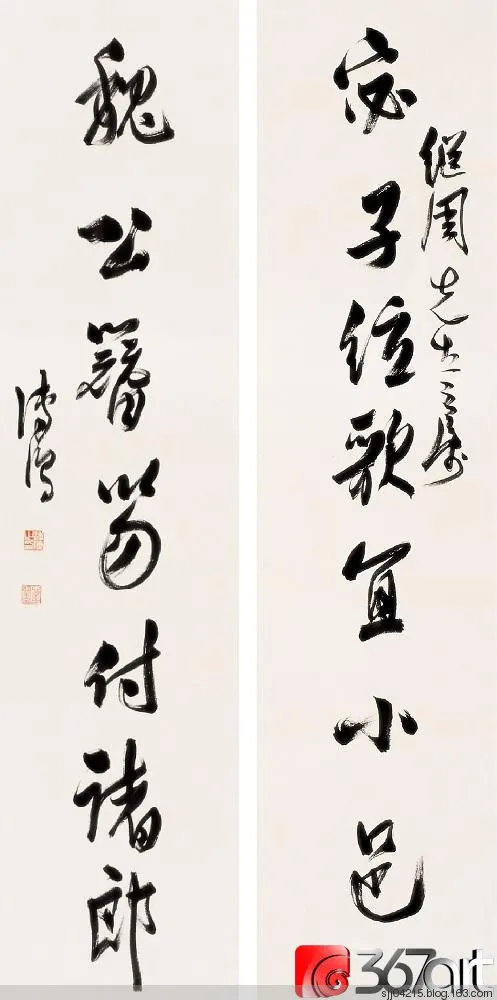 宓子絃歌宜小邑
继周先生
魏公簪笏付諸郎
溥儒
367art
sjj04215.blog.163.com